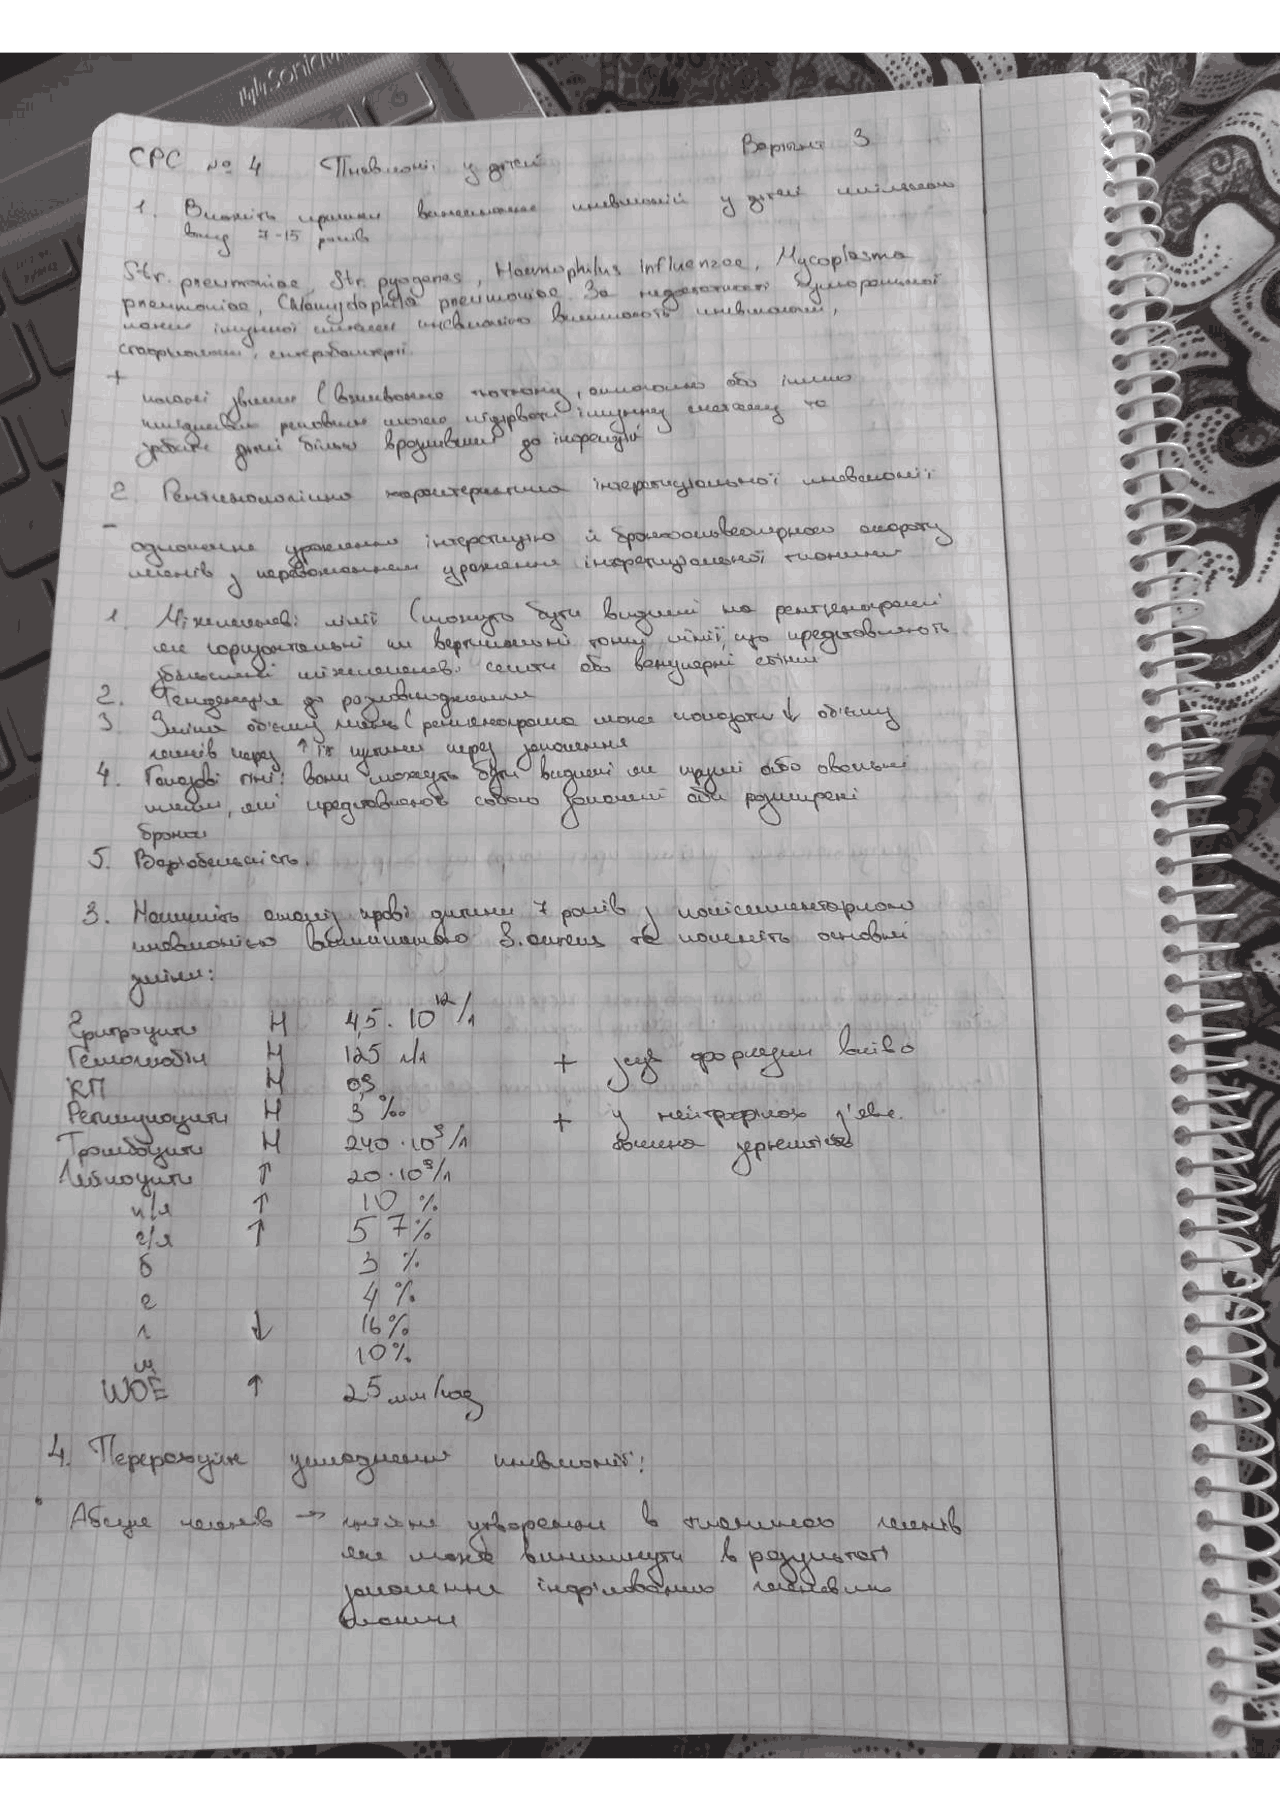 СРС № 4 Пневмонії у дітей Варіант 3
1. Вкажіть причини виникнення пневмоній у дітей шкільного
віку 7-15 років
Str. pneumoniae, Str. pyogenes, Haemophilus influenzae, Mycoplasma
pneumoniae, Chlamydophila pneumoniae. За недостатності гуморальної
ланки імунної системи пневмонію викликають пневмококи,
стафілококи, ентеробактерії.
+
погані звички (вживання тютюну, алкоголю або інших
шкідливих речовин може підірвати імунну систему та
зробити дітей більш вразливими до інфекцій
2. Рентгенологічна характеристика інтерстиціальної пневмонії:
-
одночасне ураження інтерстицію й бронхоальвеолярного апарату
легенів з переважанням ураження інтерстиціальної тканини
1. Міжлегеневі лінії (можуть бути видимі на рентгенограмі
як горизонтальні чи вертикальні тонкі лінії, що представляють
збільшені міжлегеневі септи або венулярні стінки
2. Тенденція до розповсюдження
3. Зміни об'єму легень (рентгенограма може показати ↓ об'єму
легенів через ↑ їх щільни через запалення
4. Гангові тіні: вони можуть бути видимі як круглі або овальні
плями, які представляють собою запалені або розширені
бронхи
5. Варіабельність.
3. Напишіть аналіз крові дитини 7 років з полісегментарною
пневмонією викликаною S. aureus та поясніть основні
зміни:
Еритроцити N 4,5·10¹²/л
Гемоглобін N 125 г/л + зсув формули вліво
КП N 0,9
Ретикулоцити N 3‰ + у нейтрофілах з'явл.
Тромбоцити N 240·10⁹/л токсична зернистість
Лейкоцити ↑ 20·10⁹/л
п/я ↑ 10 %
с/я ↑ 57%
б 3 %
е 4 %
л ↓ 16%
м 10%
ШОЕ ↑ 25 мм/год
4. Перерахуйте ускладнення пневмонії:
• Абсцес легенів → гнійне утворення в тканинах легенів
яке може виникнути в результаті
запалення інфікованих легеневих
тканин